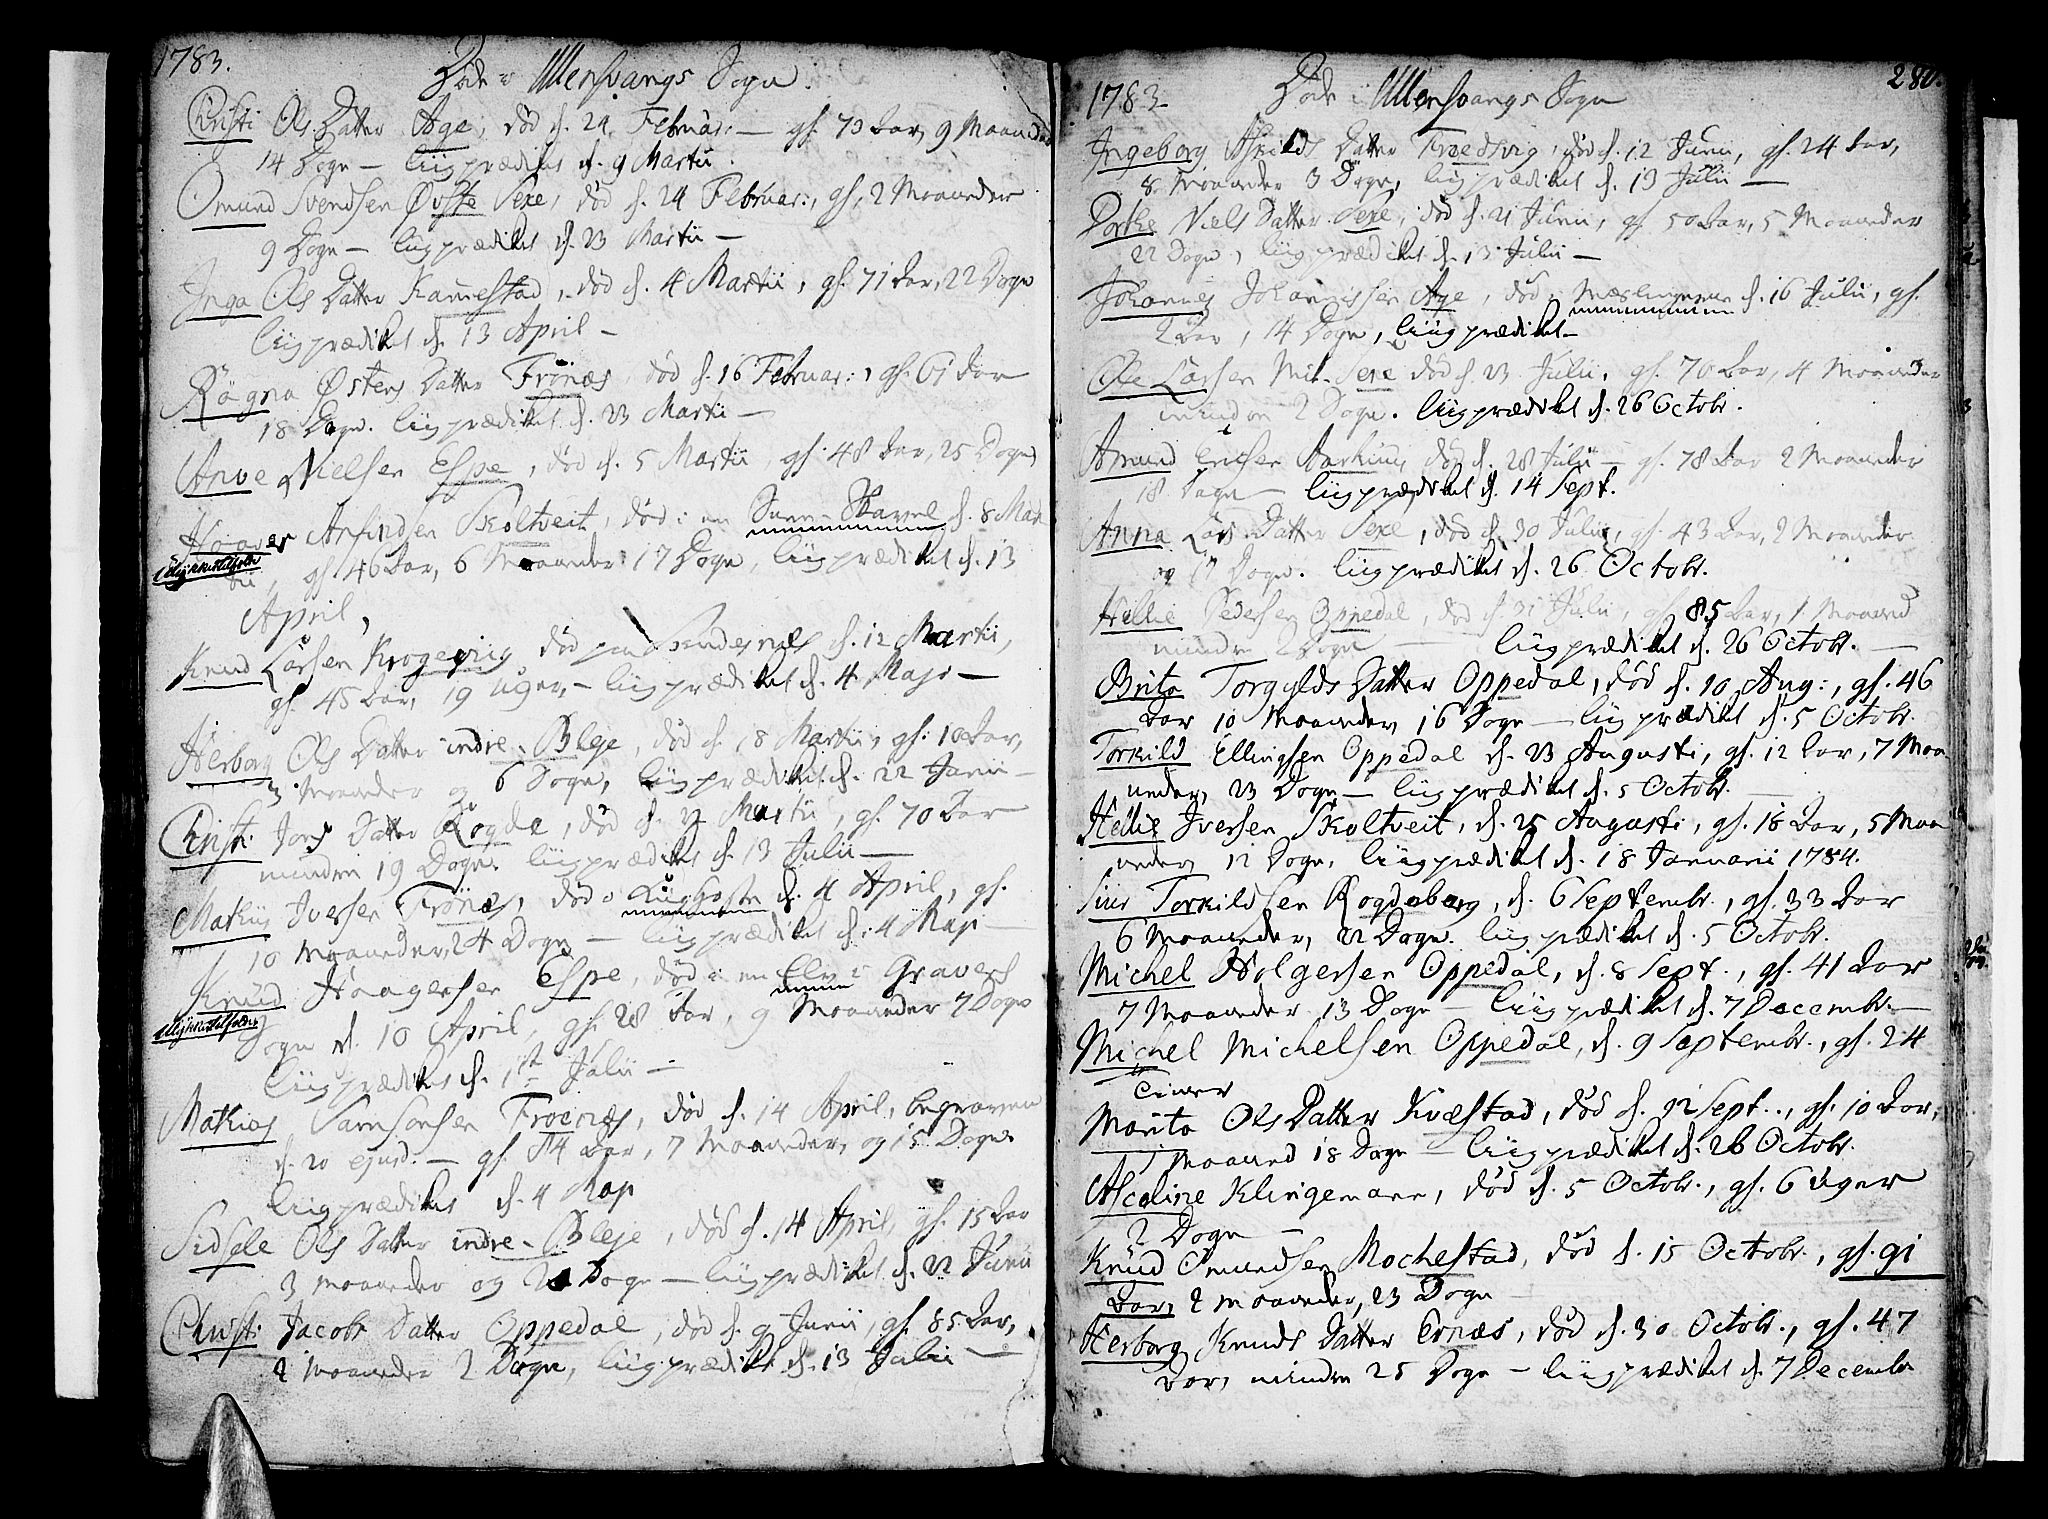 1783.
Døde i Ullensvangs Sogn.
Christi Ols Datter Age, død d. 24 Februar: — gl. 73 Aar, 9 Maaneder
14 Dogn — liigprædiket d. 9 Martii.
Omund Svendsen Øvste Sexe, død d. 24 Februar:, gl. 2 Maaneder
9 Dogn — liigprædiket d. 23 Martii —
Inga Ols Datter Kambestad, død d. 4 Martii, gl. 71 Aar, 22 Dogn
liigprædiket d. 13 April —
Rågna Østens Datter Frönæs, død d. 16 Februar:, gl. 61 Aar
18 Dogn. liigprædiket d. 23 Martii —
Arve Nielsen Espe, død d. 5 Martii, gl. 48 Aar, 25 Dogn
Haaver Amundsen Skoltveit, død i en Snee-Skavel d. 8 Mar
tii, gl. 46 Aar, 6 Maaneder 17 Dogn, liigprædiket d. 13
Ulykkestilfælde
April,
Knud Larsen Krogevig død paa d. 12 Martii,
gl. 45 Aar, 19 Uger, — liigprædiket d. 4 Maji —
Herborg Ols Datter indre-Bleje, død d. 18 Martii, gl. 10 Aar,
3 Maaneder og 6 Dogn, liigprædiket d. 22 Junii —
Christi Jons Datter Rogde, død d. 22 Martii, gl. 70 Aar
mindre 19 Dogn. liigprædiket d. 13 Julii —
Mathis Iversen Frönæs, død i d. 4 April, gl.
10 Maaneder, 24 Dogn — liigprædiket d. 4 Maji —
Knud Haagensen Espe, død i en Elv i Gravens
Ulykkestilfælde
Sogn d. 10 April, gl. 28 Aar, 9 Maaneder 7 Dogn
liigprædiket d. 1st Julii —
Mathias Samsonsen Froenæs, død d. 14 April, begraven
d. 20 ejusd. — gl. 14 Aar, 7 Maaneder, og 15 Dogn
liigprædiket d. 4 Maji
Sidsele Ols Datter indre-Bleje, død d. 14 April, gl. 15 Aar
3 Maaneder og 2 Dogn — liigprædiket d. 22 Junii
Christi Jacobs Datter Oppedal, død d. 9 Junii, gl. 85 Aar,
2 Maaneder 2 Dogn, liigprædiket d. 13 Julii —
280.
1783
Døde i Ullensvangs Sogn
Ingeborg Askilds Datter Froedsvig, død d. 12 Junii, gl. 24 Aar,
8 Maaneder 3 Dogn, liigprædiket d. 13 Julii —
Dorthe Niels Datter Sexe, død d. 21 Junii, gl. 50 Aar, 5 Maaneder
22 Dogn, liigprædiket d. 13 Julii —
Johannes Johannissen Age, død i Mæslingerne d. 16 Julii, gl.
2 Aar, 14 Dogn, liigprædiket —
Ole Larsen Mit-Sexe død d. 23 Julii, gl. 70 Aar, 4 Maaneder
mindre 2 Dogn. liigprædiket d. 26 Octobr.
Amund Ericsen død d. 28 Julii — gl. 78 Aar 2 Maaneder
18 Dogn — liigprædiket d. 14 Sept.
Anna Lars Datter Sexe, død d. 30 Julii, gl. 43 Aar, 2 Maaneder
og 17 Dogn. liigprædiket d. 26 Octobr.
Hellie Pedersen Oppedal, død d. 31 Julii, gl. 85 Aar, 1 Maaned
mindre 2 Dogn — liigprædiket d. 26 Octobr. —
Brita Torgylds Datter Oppedal, død d. 10 Aug:, gl. 46
Aar 10 Maaneder, 16 Dogn — liigprædiket d. 5 Octobr.
Torkild Ellingsen Oppedal d. 23 Augusti, gl. 12 Aar, 7 Maa
neder, 23 Dogn — liigprædiket d. 5 Octobr. —
Hellie Iversen Skoltveit, d. 25 Augusti, gl. 18 Aar, 5 Maa
neder, 12 Dogn, liigprædiket d. 18 Januarii 1784.
Siur Torkildsen Rogdeberg, d. 6 Septembr., gl. 33 Aar
6 Maaneder, 22 Dogn. liigprædiket d. 5 Octobr.
Michel Holgersen Oppedal, d. 8 Sept., gl. 41 Aar
7 Maaneder 13 Dogn — liigprædiket d. 7 Decembr. —
Michel Michelsen Oppedal, d. 9 Septembr., gl. 24
Timer
Marita Ols Datter Kvæstad, død d. 12 Sept., gl. 10 Aar,
1 Maaned 18 Dogn — liigprædiket d. 26 Octobr.
Ascoline Klingemann, død d. 5 Octobr., gl. 6 Uger
2 Dogn —
Knud Omundsen Mochestad, død d. 15 Octobr., gl. 91
Aar, 2 Maaneder, 23 Dogn —
Herborg Knuds Datter Ernæs, død d. 30 Octobr., gl. 47
Aar, mindre 25 Dogn — liigprædiket d. 7 Decembr